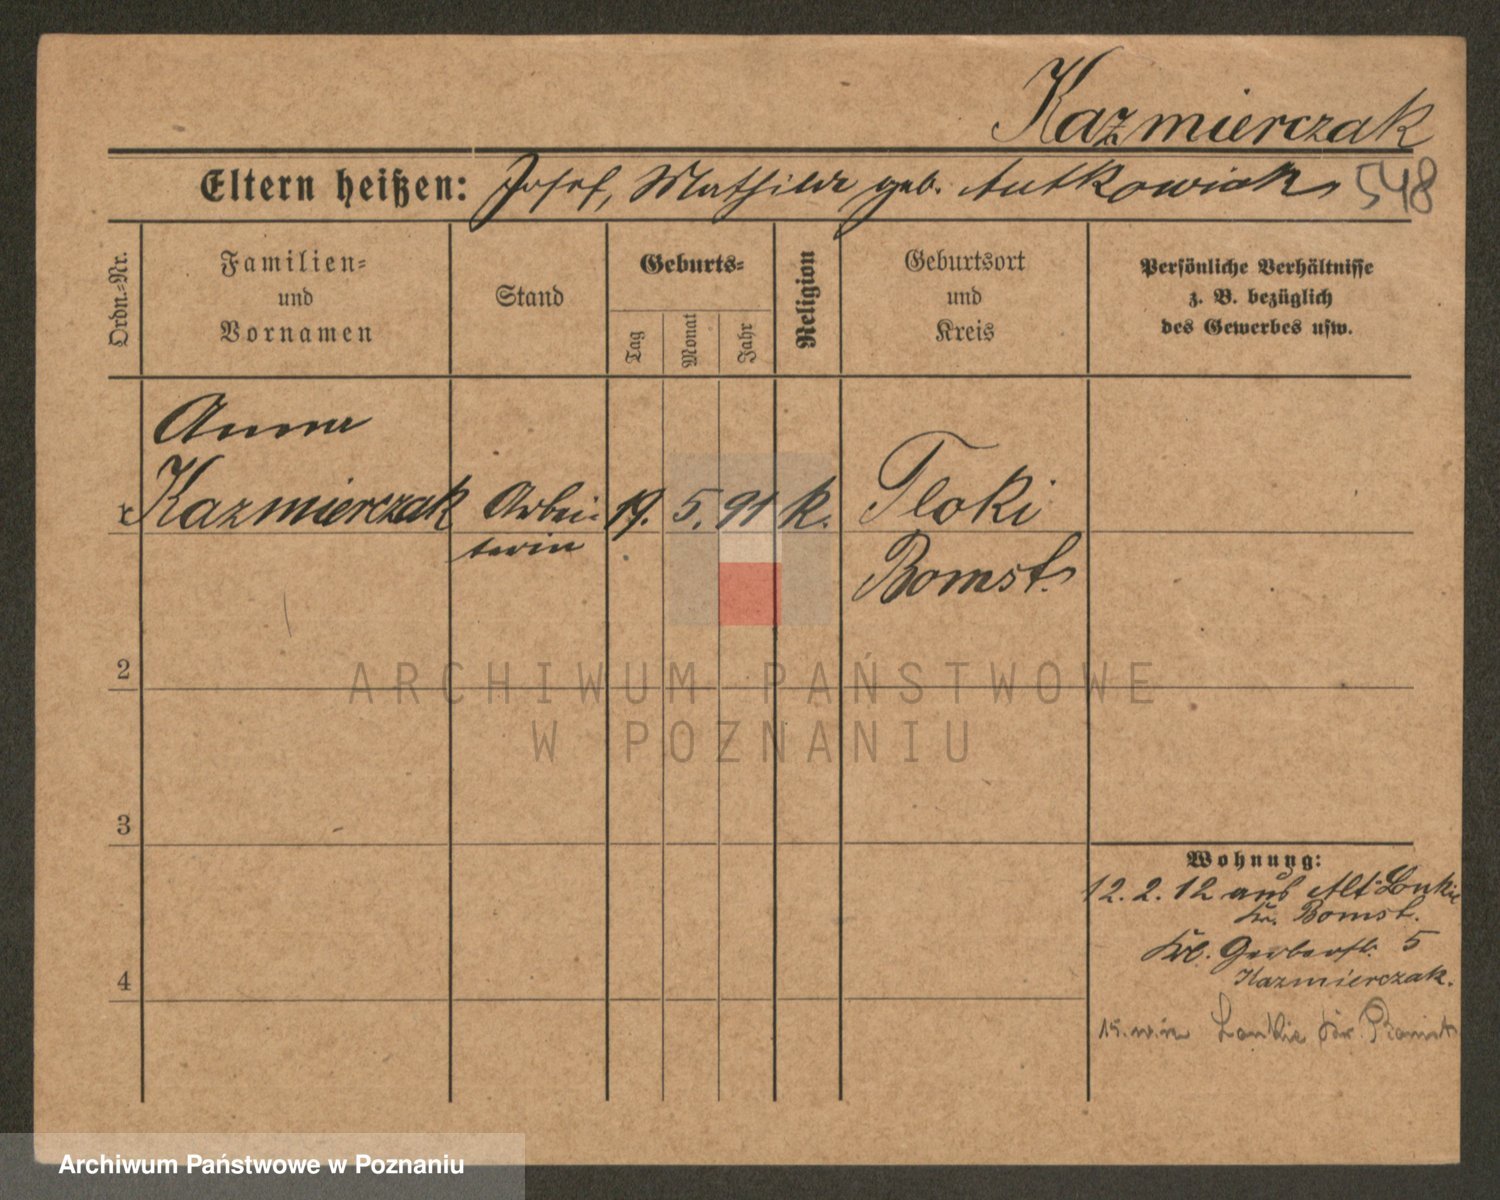 Kazmierczak
Eltern heißen: Josef, Mathilde geb. Antkowiak 548
Ordn.-Nr.
Familien-
und
Vornamen
Stand
Geburts-
Tag
Monat
Jahr
Religion
Geburtsort
und
Kreis
Persönliche Verhältnisse
z. B. bezüglich
des Gewerbes usw.
Anna
1 Kazmierczak Arbei- 19. 5. 91 k. Tloki
terin Bomst.
2
ARCHIWUM PAŃSTWOWE
W POZNANIU
3
Wohnung:
12. 2. 12 aus Alt-Lonkie
Kr. Bomst.
4
Gerberstr. 5
Kazmierczak.
15. Lonkie Kr. Bomst
Archiwum Państwowe w Poznaniu